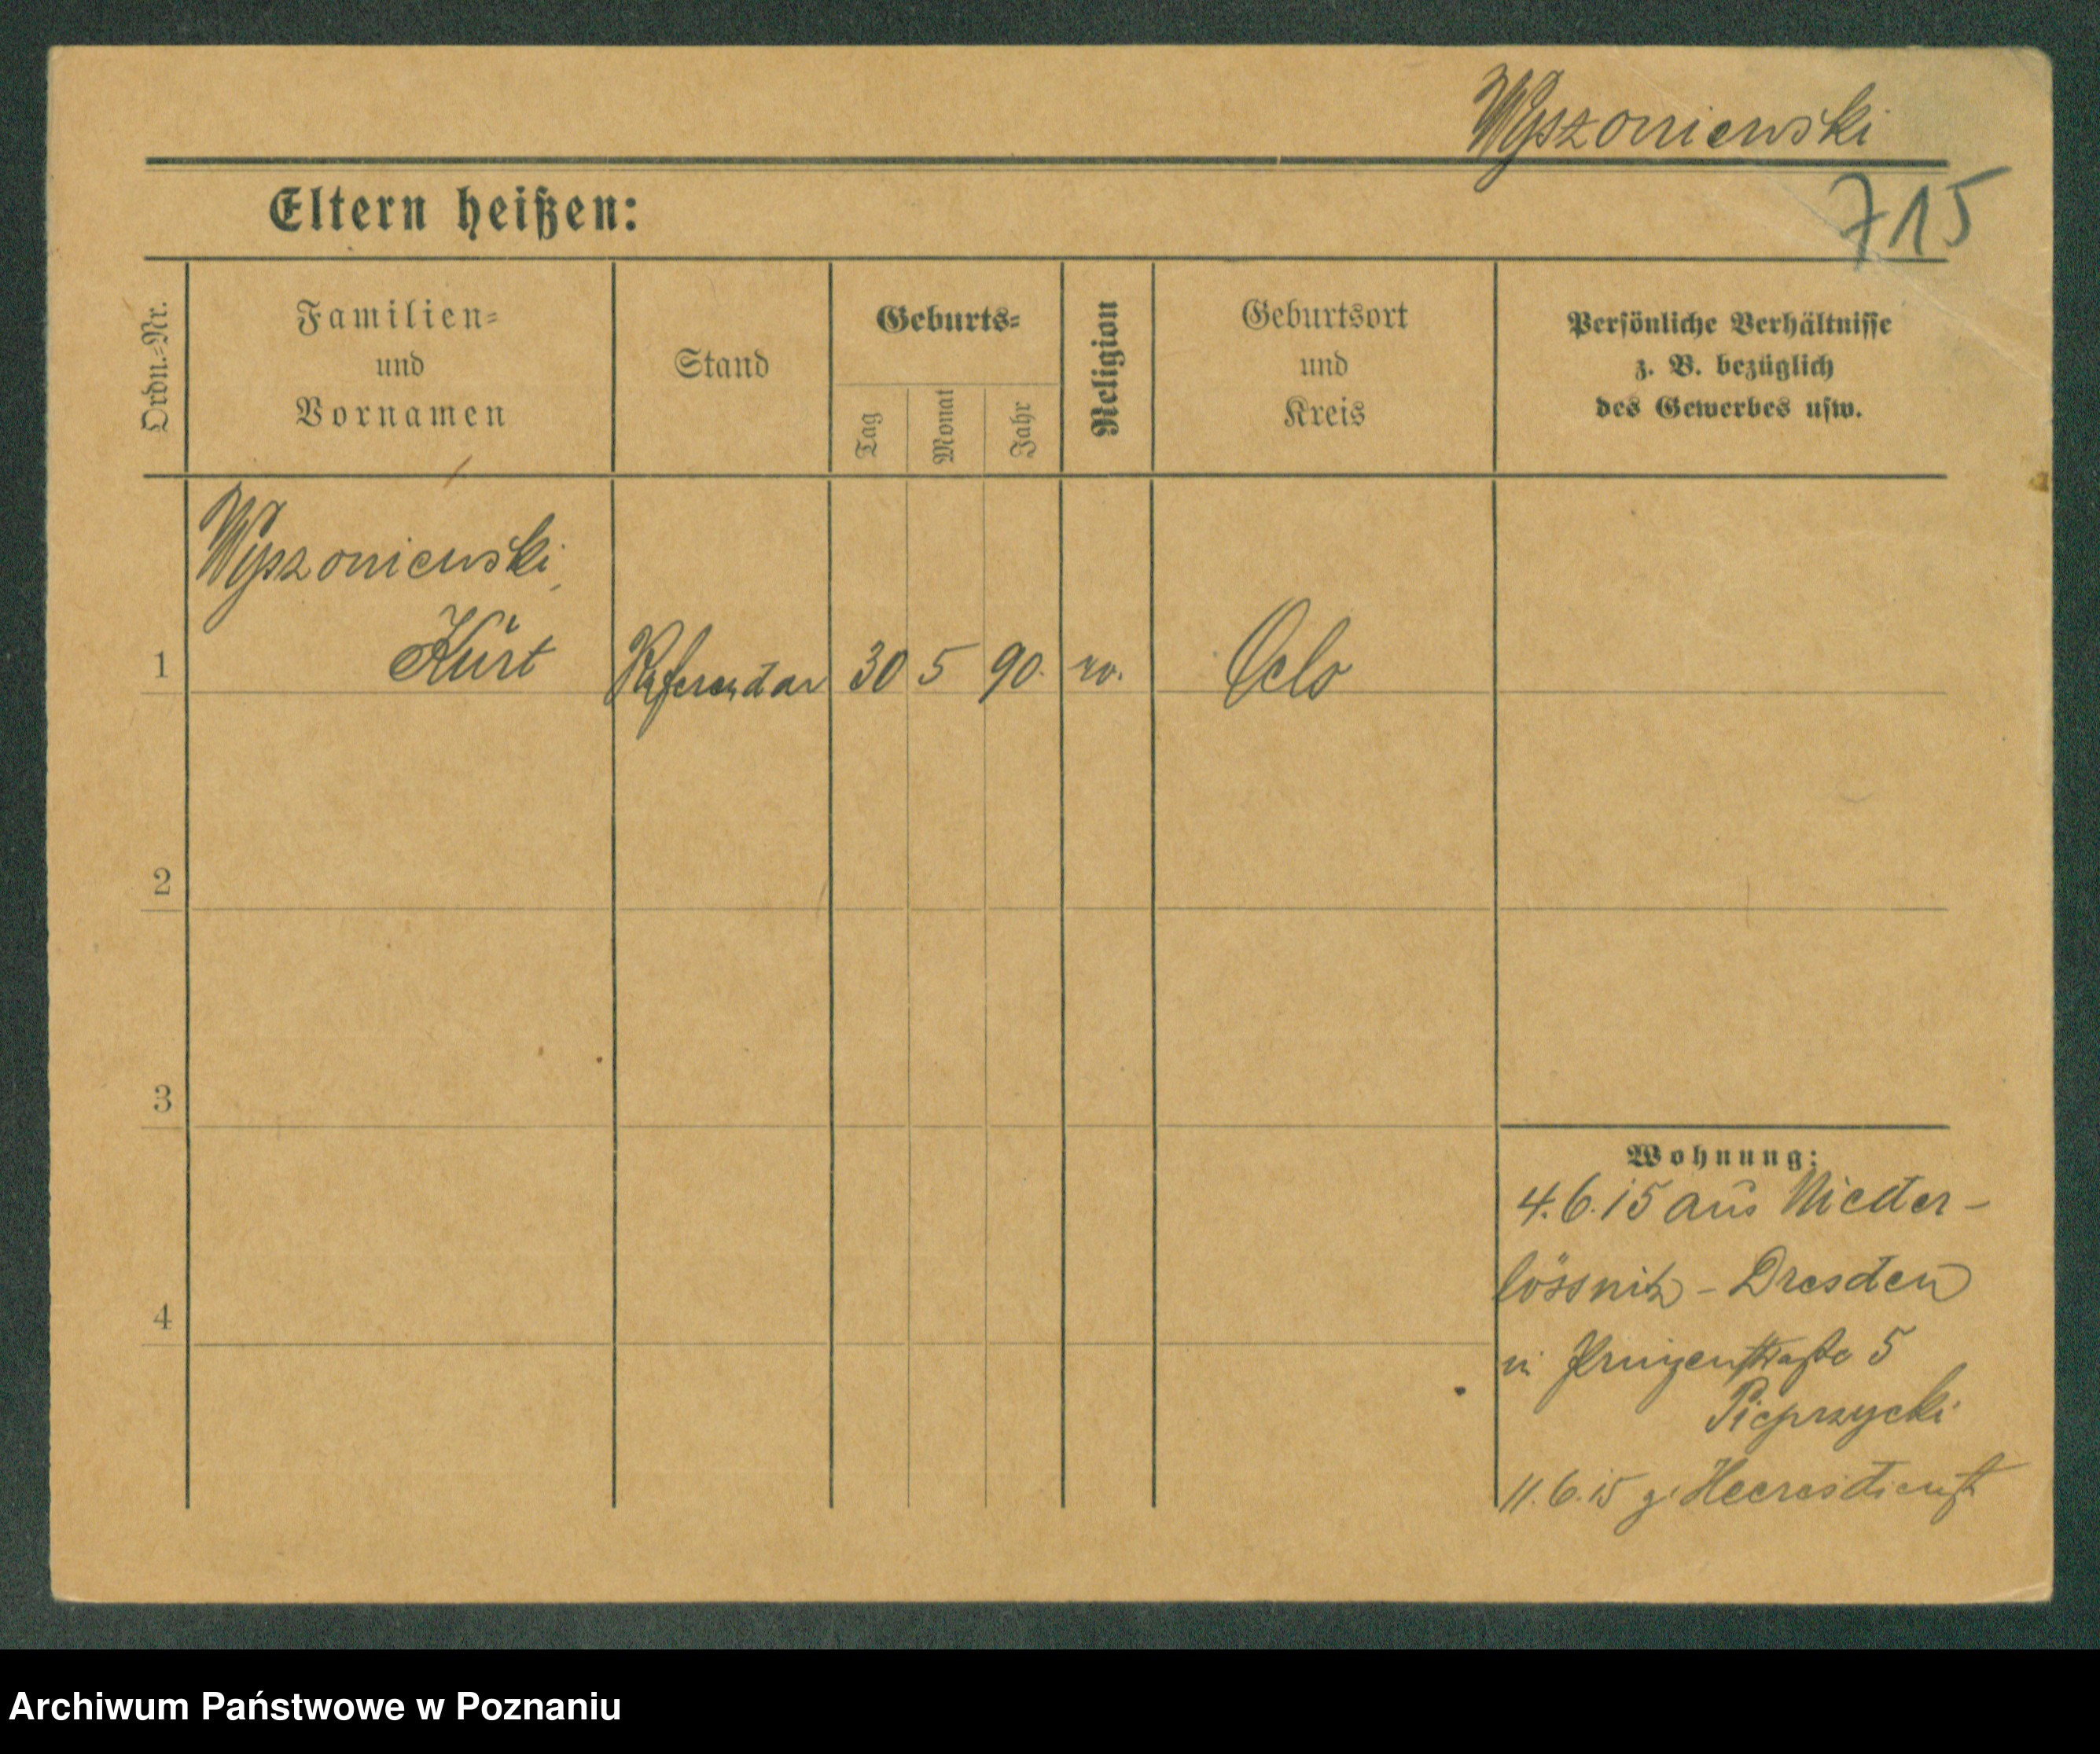 Wyszoniewski
715
Eltern heißen:
Ordn.-Nr.
Familien-
und
Vornamen
Stand
Geburts-
Tag
Monat
Jahr
Religion
Geburtsort
und
Kreis
Persönliche Verhältnisse
z. B. bezüglich
des Gewerbes usw.
Wyszoniewski,
1 Kurt Referendar 30 5 90.
2
3
4
Wohnung:
4.6.15 aus Nieder-
lössnitz - Dresden
Prinzenstraße 5
Pieprzycki
11.6.15 z. Heeresdienst
Archiwum Państwowe w Poznaniu